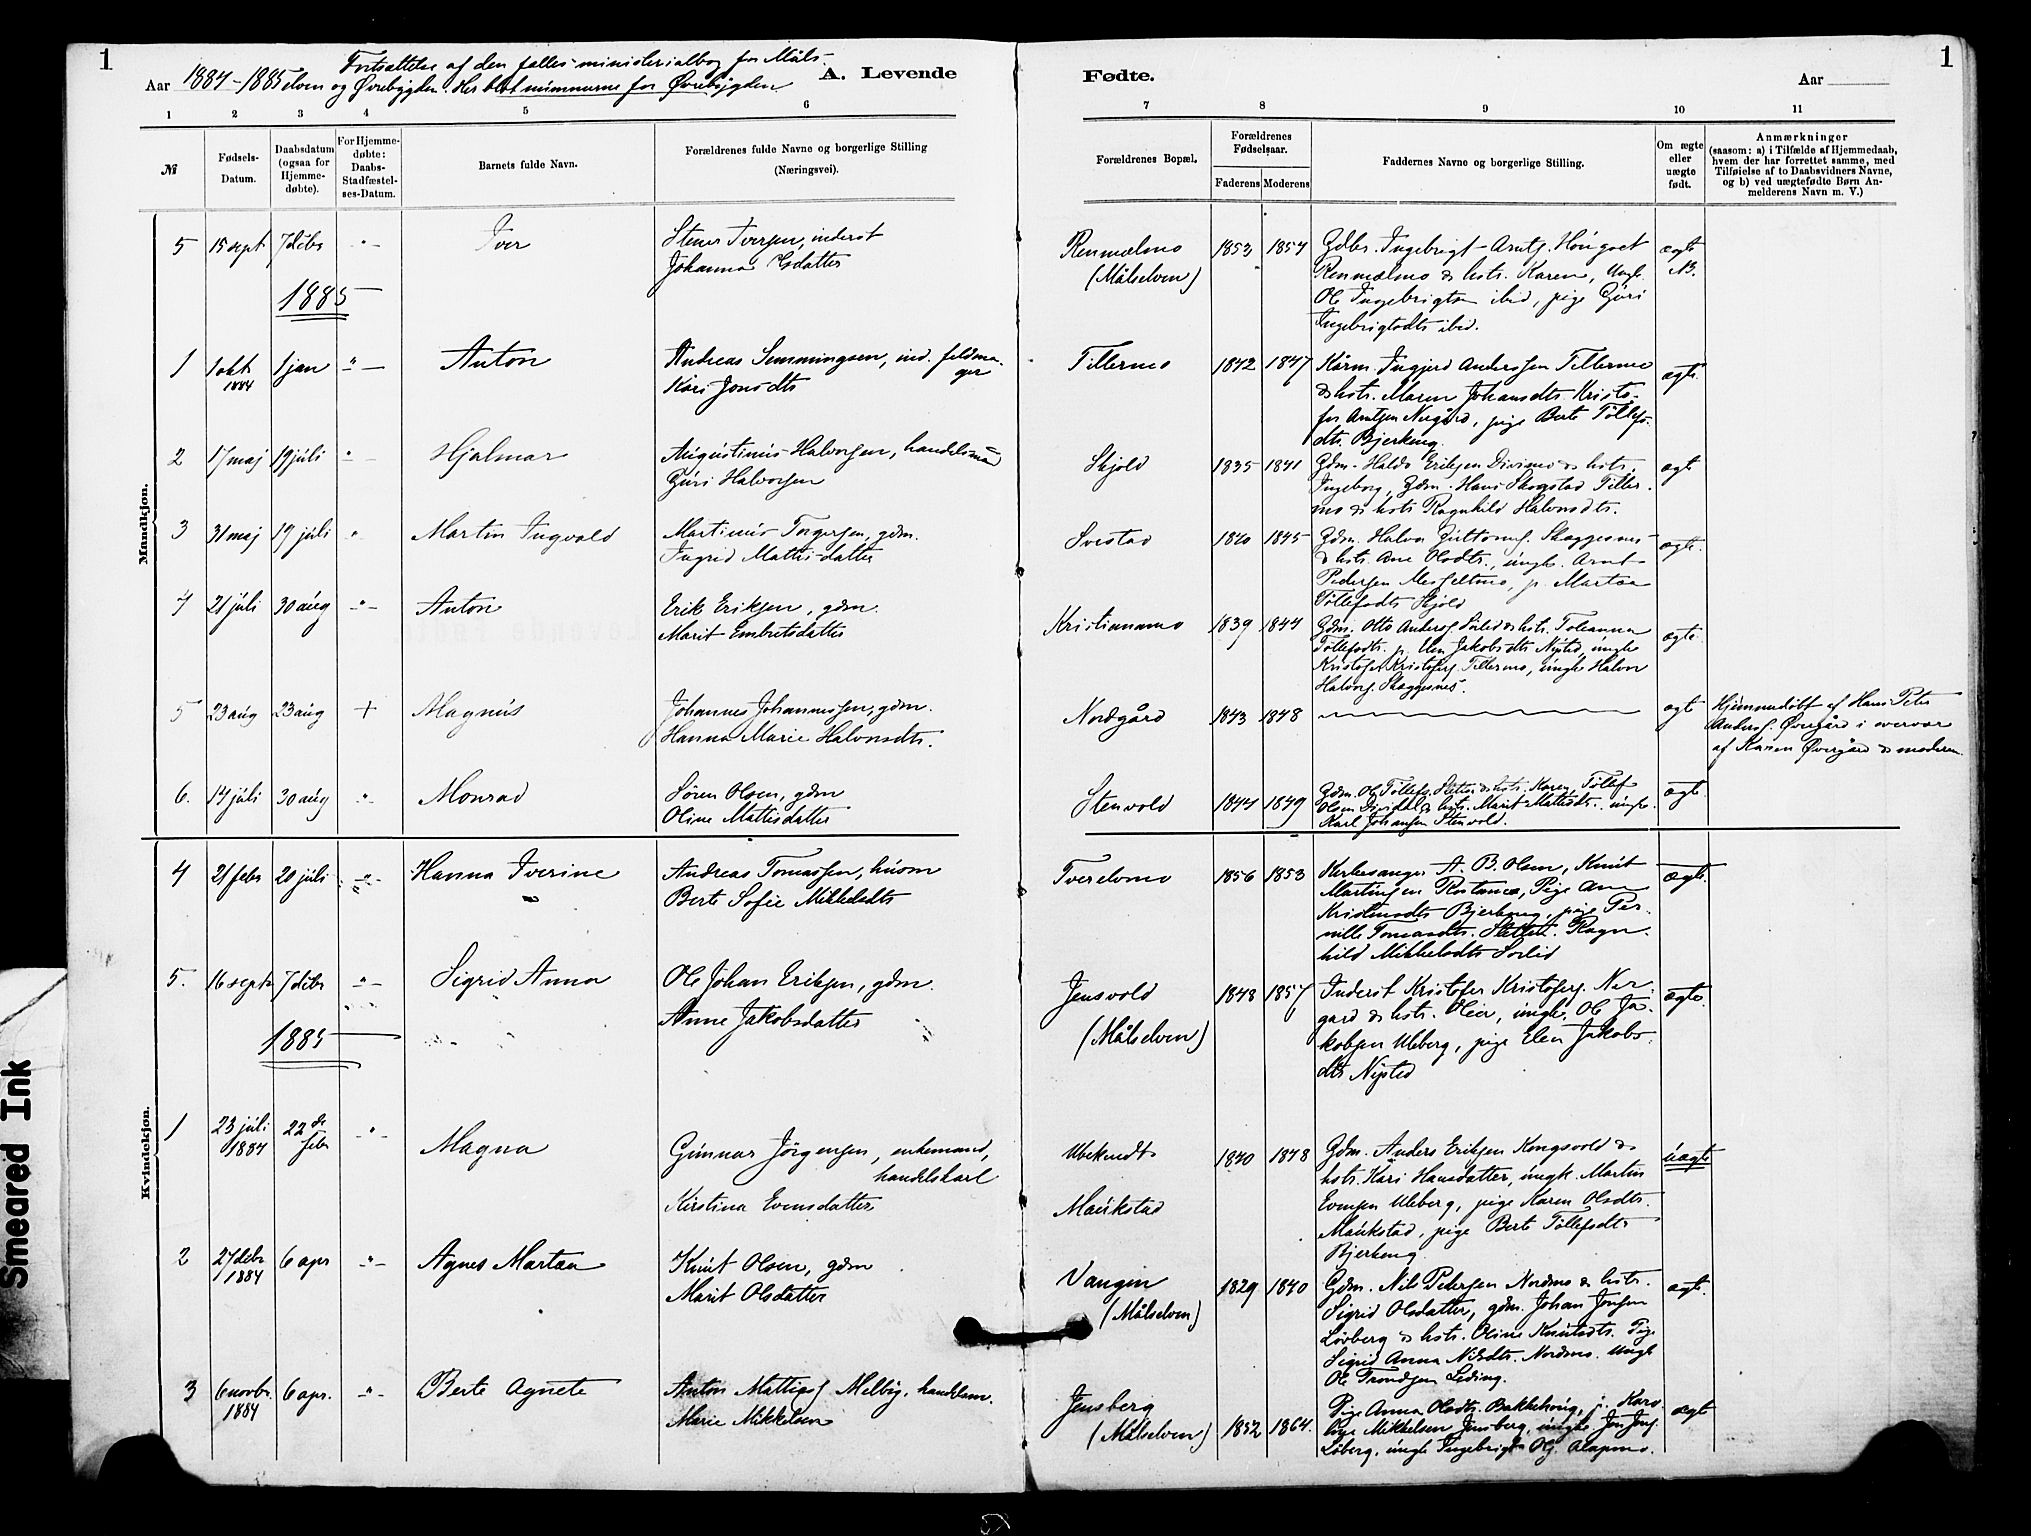 1
1
Fortsættelse af den fælles ministerialbog for Måls-
Aar 1884-1885 elven og Øvrebygden. Her blot numrene for Øvrebygden
A. Levende Fødte.
Aar
1 2 3 4 5 6 7 8 9 10 11
№
Fødsels-Datum.
Daabsdatum (ogsaa for Hjemme-døbte).
For Hjemme-døbte: Daabs-Stadfæstel-ses-Datum.
Barnets fulde Navn.
Forældrenes fulde Navne og borgerlige Stilling (Næringsvei).
Forældrenes Bopæl.
Forældrenes Fødselsaar.
Faderens Moderens
Faddernes Navne og borgerlige Stilling.
Om ægte eller uægte født.
Anmærkninger
(saasom: a) i Tilfælde af Hjemmedaab,
hvem der har forrettet samme, med
Tilføielse af to Daabsvidners Navne,
og b) ved uægtefødte Børn An-
melderens Navn m. V.)
Mandkjøn.
5 15 sept 7 dcbr -"- Iver
Stener Iversen, inderst
Johanna Esdatter
Renmælmo
(Målselven)
1853 1854
Gdbr. Ingebrigt Arntz.
Renmælmo & hstr. Karen, Ungk.
Ole Ingebrigtsen ibid, pige Guri
Ingebrigtsdtr ibid.
ægte
NB.
1885
1 1 okt 1884 1 jan -"- Anton
Andreas Simmingsen, ind. feldma-
ger
Kari Jonsdtr
Tillermo
1842 1847
Kårm. Ingjerd Anderssen Tillermo
& hstr. Maren Johansdtr. Kristo-
fer Arntzen Nergård, pige Berte Tollefs-
dtr. Bjerkeng.
ægte.
2 17 maj 19 juli -"- Hjalmar
Augustinus Halvorsen, handelsmand
Guri Halvorsen
Skjold
1835 1841
Gdm. Haldo Eriksen Divimo & hstr.
Ingeborg, Gdm. Hans Skogstad Tiller-
mo & hstr Ragnhild Halvorsdtr.
ægte
3 31 maj 19 juli " Martin Ingvald
Martinus Torgersen, gdm.
Ingrid Mathisdatter
Svestad
1840 1845
Gdm. Halvor Skaggesnes
& hstr. Ane Olsdtr., ungk. Arnt
Pedersen Messeltmo, p. Martea
Tollefsdtr Skjold
ægte.
4 21 juli 30 aug -"- Anton
Erik Eriksen, gdm.
Marit Embretsdatter
Kristianamo
1839 1844
Gdm. Otto Anders. Sörlid & hstr. Toleanna
Tollefsdtr. p. Elen Jakobsdtr Nysted, ungk
Kristofer Kristofers. Tillermo, ungk Halvor
Halvors. Skaggesnes.
ægte.
5 23 aug 23 aug + Magnus
Johannes Johannessen, gdm.
Hanna Marie Halvorsdtr.
Nordgård
1843 1848
ægte
Hjemmedøbt af Hans Peter
Anders. Øvergård i overvær
af Karen Øvergård & moderen.
6. 14 juli 30 aug " Monrad
Sören Olsen, gdm
Oline Mattisdatter
Stenvold
1844 1849
Gdm. Ole Tollefs. Sletten & hstr. Karen, Tollef
Olsen Dividal & hstr. Marit Mattisdtr. ungk.
Karl Johansen Stenvold.
ægte.
Kvindekjøn.
4 21 febr 20 juli -"- Hanna Iverine
Andreas Tomassen, husm
Berte Sofie Mikkelsdtr
Tverelvmo
1856 1853
Kirkesanger A. B. Olsen, Knut
Martinsen Rostamo, Pige Ane
Kristensdtr Bjerkeng, pige Per-
nille Tomasdtr. Slettli. Ragn-
hild Mikkelsdtr Sörlid
ægte.
5. 16 septr 7 dcbr -"- Sigrid Anna
Ole Johan Eriksen, gdm.
Anne Jakobsdatter
Jensvold
(Målselven)
1848 1857
Inderst Kristofer Kristofers. Ner-
gard & hstr. Oleor, ungk. Ole Ja-
kobsen Uleberg, pige Elen Jakobs-
dtr Nysted
ægte.
1885
1 23 juli 1884 22de febr -"- Magna
Gunnar Jörgensen, enkemand,
handelskarl
Kirstina Evensdatter
Ubekendt
Maukstad
1840 1848
Gdm. Anders Eriksen Kongsvold &
hstr. Kari Hansdatter, ungk. Martin
Evensen Uleberg, pige Karen Olsdtr.
Maukstad, pige Berte Tollefsdtr
Bjerkeng
uægte
2 27 dcbr 1884 6 apr -"- Agnes Martea
Knut Olsen, gdm
Marit Olsdatter
Vangen
(Målselven)
1829 1840
Gdm. Nils Pedersen Nordmo & hstr.
Sigrid Olsdatter, gdm. Johan Jonsen
Lövberg & hstr. Oline Knutsdtr. Pige
Sigrid Anna Nilsdtr. Nordmo. Ungk
Ole Trondsen Leding.
ægte.
3 6 novbr. 1884 6 apr. -"- Berte Agnete
Anton Mattias. Melby. handelsm.
Marie Mikkelsen
Jensberg
(Målselven)
1852 1864.
Pige Anna Olsdtr. Bakkehaug, p. Karo-
line Mikkelsen Jensberg, ungk Jon Jons.
Löberg, ungk Ingebrigt Ols. Alapmo.
ægte
Smeared Ink